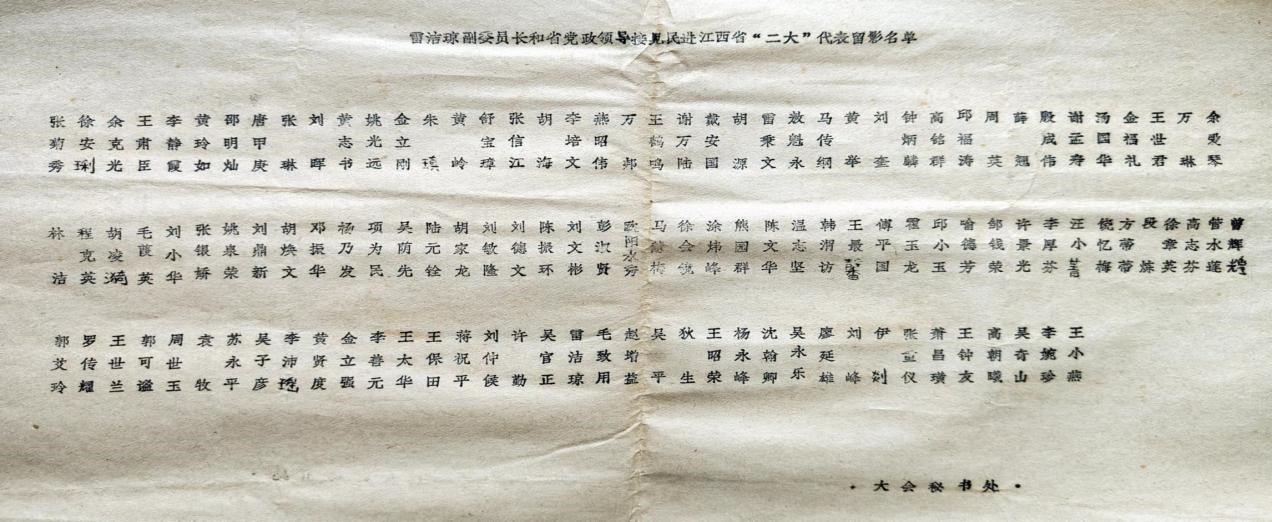 雷洁琼副委员长和省党政领导接见民进江西省“二大”代表留影名单
张菊秀 徐安琍 余克光 王肃臣 李静霞 黄玲如 邵明灿 唐甲庚 张琳 刘晖 黄志书 姚光远 金立刚 朱瑱 黄岭 舒宝璋 张信江 胡海 李培文 燕昭伟 万邺 王鹤鸣 谢万陆 戴安国 胡源 雷乘文 敖魁永 马传纲 黄举 刘奎 钟炳麟 高铭群 邱福涛 周英 薛翘 殷成伟 谢孟寿 汤国华 金福礼 王世君 万琳 余爱琴
林洁 程克英 胡凌漪 毛菠英 刘小华 张银娇 姚泉荣 刘鼎新 胡焕文 邓振华 杨乃发 项为民 吴荫先 陆元铨 胡家龙 刘敏隆 刘德文 陈振环 刘文彬 彭淑贤 欧阳水秀 马梅 徐会镜 涂炜峰 熊国群 陈文华 温志坚 韩渭访 王最馨 傅平国 霍玉龙 邱小玉 喻德芳 邹钱荣 许景光 李厚芬 汪小菁 饶忆梅 方蒂蒂 段炼 徐章英 高志芬 管水莲 曾辉煌
郭艾玲 罗传耀 王世兰 郭可谧 周世玉 袁牧 苏永平 吴子彦 李沛 黄贤度 金立强 李善元 王太华 王保田 蒋祝平 刘仲侯 许勤 吴官正 雷洁琼 毛致用 赵增益 吴平 狄生 王昭荣 杨永峰 沈翰卿 吴永乐 廖延雄 刘峰 伊剡 张宜仪 萧昌璜 王钟友 高朝曦 吴奇山 李婉珍 王小燕
·大会秘书处·